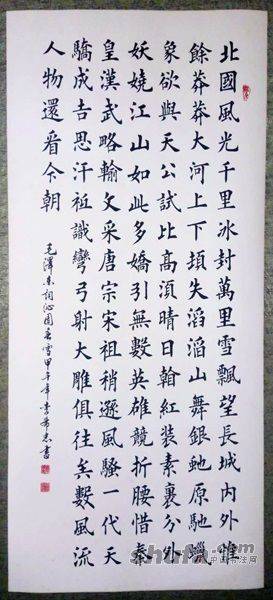 北國風光千里冰封萬里雪飄望長城内外惟
餘莽莽大河上下頓失滔滔山舞銀虵原馳蠟
象欲與天公試比高須晴日看紅装素裹分外
妖嬈江山如此多嬌引無數英雄競折腰惜秦
皇漢武略輸文采唐宗宋祖稍遜風騷一代天
驕成吉思汗祗識彎弓射大雕俱往矣數風流
人物還看今朝
毛澤東詞沁園春雪甲午年李希忠書
shufa.com
中国书法网